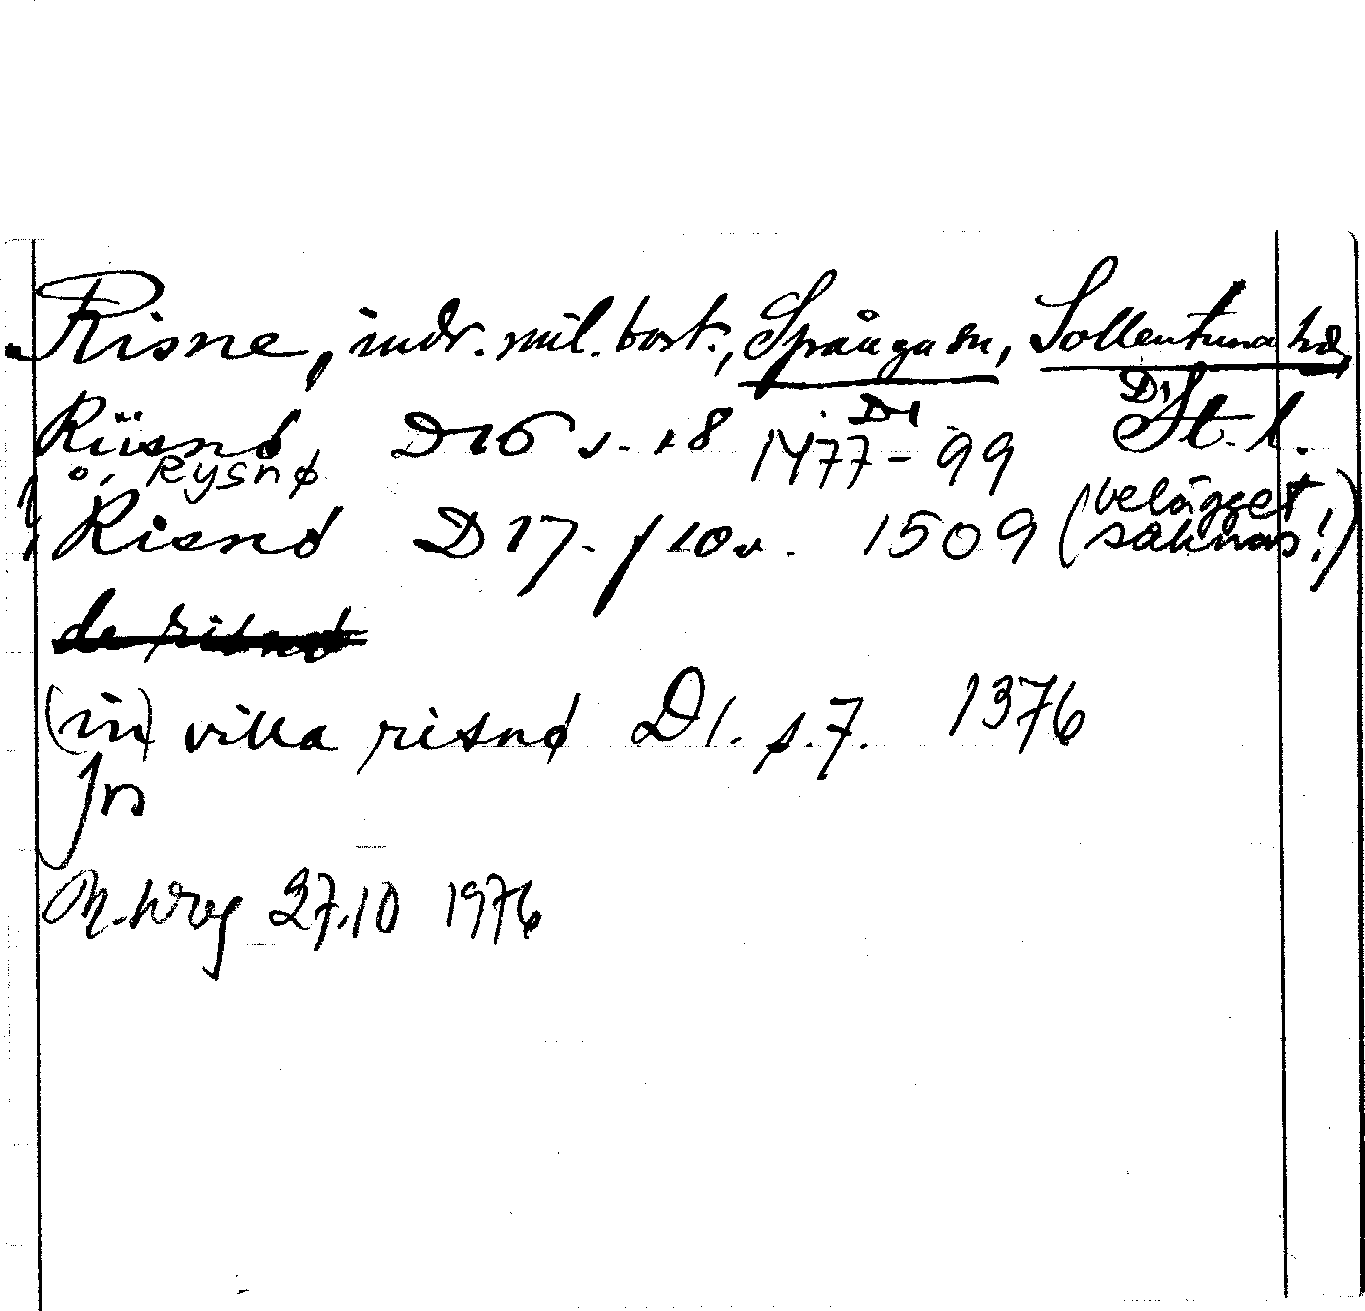 Risne, indr. mil. bost., Spånga sn, Sollentuna hd,
D1 D1
Riisnø D16 s. 18 1477-99 St. l.
o. Rysnø
Risnø D 17. f 10 v. 1509 (belägget saknas!)
de risnø
(in) villa risnø D1. s. 7. 1376
Jrs
27.10 1976